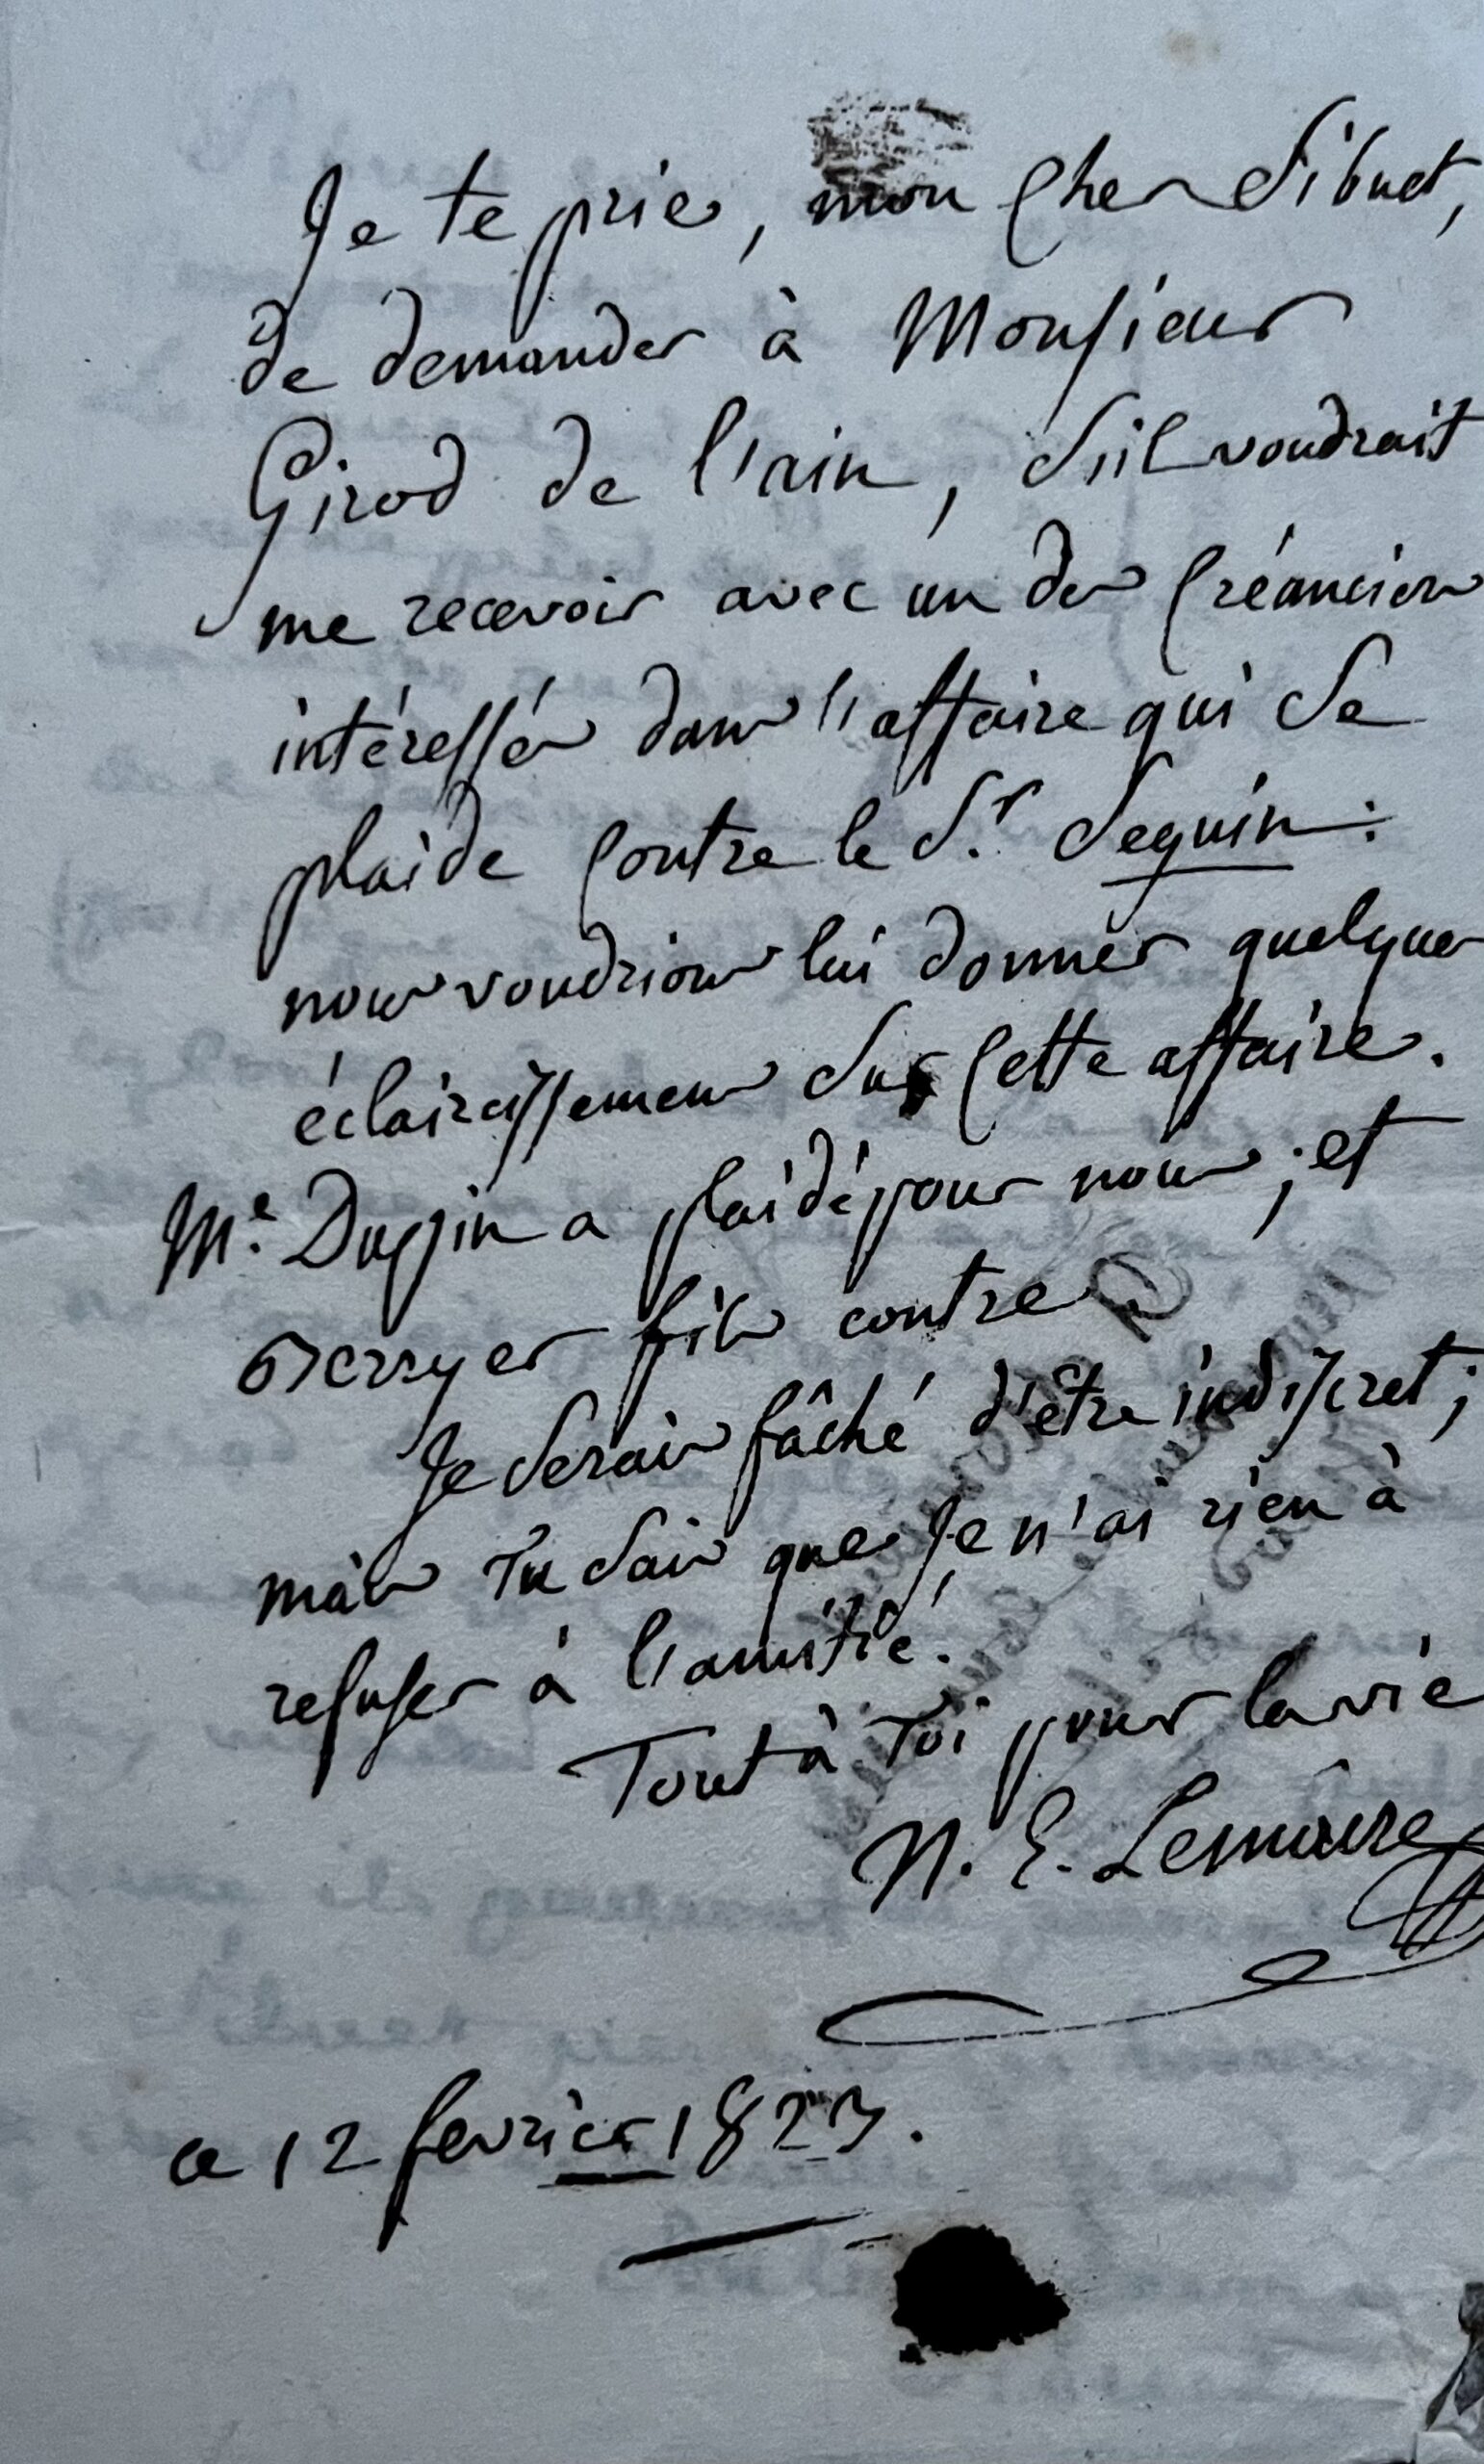 Je te prie, mon cher Sibuet,
de demander à Monsieur
Girod de l'ain, s'il voudrait
me recevoir avec un des créanciers
intéressés dans l'affaire qui se
plaide contre le Sr. Seguin :
nous voudrions lui donner quelques
éclaircissemens sur cette affaire.
Me. Duppin a plaidé pour nous ; et
Berryer fils contre
Je serais fâché d'être indiscret ;
mais tu sais que je n'ai rien à
refuser à l'amitié.
Tout à toi pour la vie
N. E. Lemaire
ce 12 fevrier 1823.